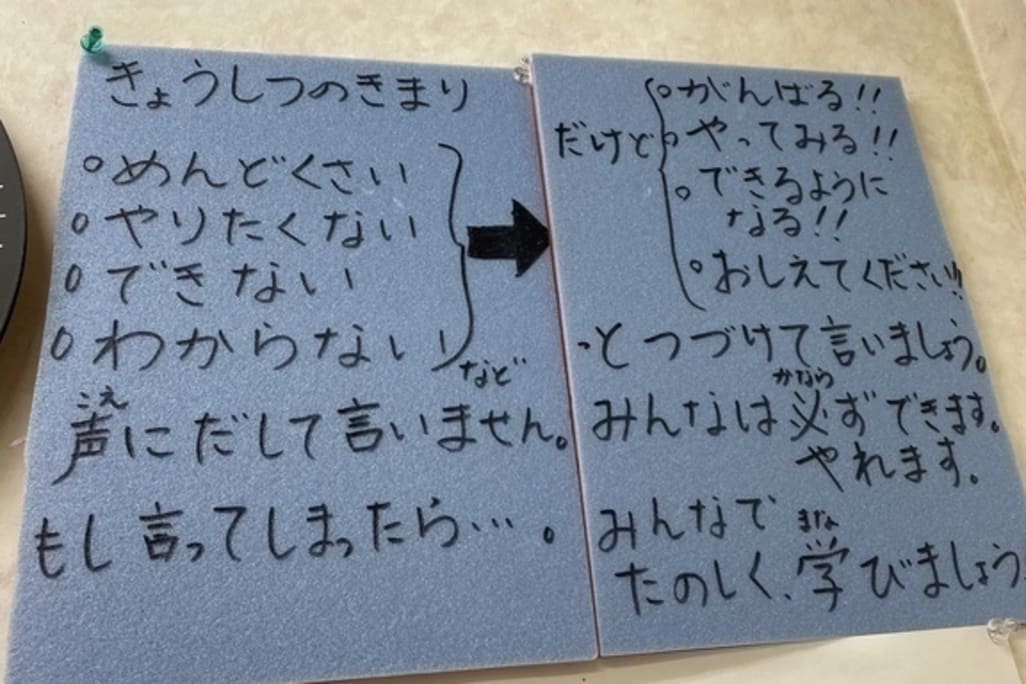 きょうしつのきまり
○めんどくさい
○やりたくない
○できない
○わからない
など
こえ
声にだして言いません。
もし言ってしまったら…。
○がんばる!!
だけど○やってみる!!
○できるように
なる!!
○おしえてください!!
っとつづけて言いましょう。
かなら
みんなは必ずできます。
やれます。
みんなで
まな
たのしく、学びましょう